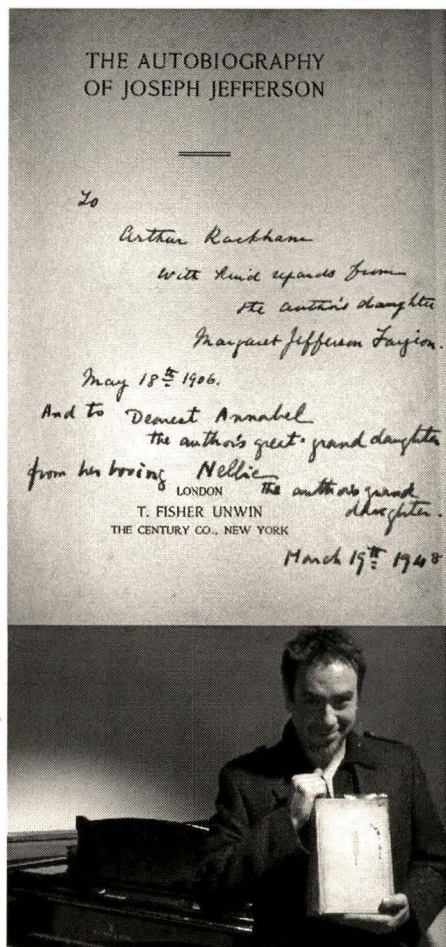 THE AUTOBIOGRAPHY
OF JOSEPH JEFFERSON
To
Arthur Rackham
with kind regards from
the author's daughter
Margaret Jefferson Farjeon.
May 18th 1906.
And to Dearest Annabel
the author's great-grand daughter
from her loving Nellie
LONDON the author's grand
daughter.
T. FISHER UNWIN
THE CENTURY CO., NEW YORK
March 19th 1948